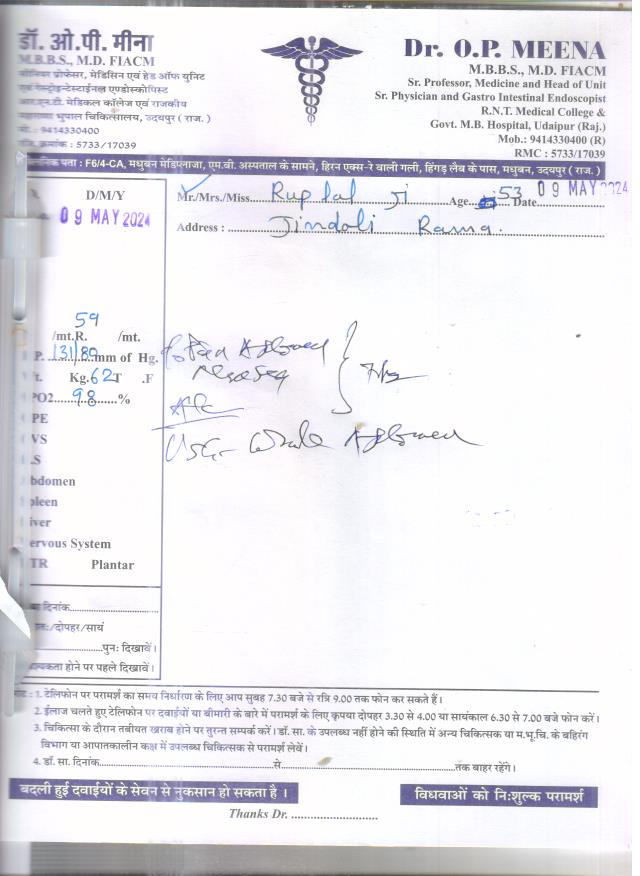 डॉ. ओ.पी. मीना
M.B.B.S., M.D. FIACM
सीनियर प्रोफेसर, मेडिसिन एवं हेड ऑफ यूनिट
एवं गेस्ट्रोइन्टेस्टाईनल एण्डोस्कोपिस्ट
आर.एन.टी. मेडिकल कॉलेज एवं राजकीय
महाराणा भूपाल चिकित्सालय, उदयपुर ( राज. )
मो. : 9414330400
रजि. क्रमांक : 5733/17039
Dr. O.P. MEENA
M.B.B.S., M.D. FIACM
Sr. Professor, Medicine and Head of Unit
Sr. Physician and Gastro Intestinal Endoscopist
R.N.T. Medical College &
Govt. M.B. Hospital, Udaipur (Raj.)
Mob.: 9414330400 (R)
RMC : 5733/17039
पता : F6/4-CA, मधुबन मेडिप्लाजा, एम.बी. अस्पताल के सामने, हिरन एक्स-रे वाली गली, हिंगड़ लैब के पास, मधुबन, उदयपुर ( राज. )
D/M/Y
09 MAY 2024
Mr./Mrs./Miss Rup lal ji Age 53 Date 09 MAY 2024
Address : Jindoli Rama.
59
/mt.R. /mt.
P. 131/89 mm of Hg.
t. Kg. 62 T .F
PO2 98 %
PE
VS
.S
bdomen
pleen
iver
ervous System
TR Plantar
Pain Abdomen
USG - Whole Abdomen
दिनांक
/दोपहर/सायं
पुनः दिखावें।
होने पर पहले दिखावें।
: 1. टेलिफोन पर परामर्श का समय निर्धारण के लिए आप सुबह 7.30 बजे से रात्रि 9.00 तक फोन कर सकते हैं।
2. ईलाज चलते हुए टेलिफोन पर दवाईयों या बीमारी के बारे में परामर्श के लिए कृपया दोपहर 3.30 से 4.00 या सायंकाल 6.30 से 7.00 बजे फोन करें।
3. चिकित्सा के दौरान तबीयत खराब होने पर तुरन्त सम्पर्क करें। डॉ. सा. के उपलब्ध नहीं होने की स्थिति में अन्य चिकित्सक या म.भू.चि. के बहिरंग
विभाग या आपातकालीन कक्ष में उपलब्ध चिकित्सक से परामर्श लेवें।
4. डॉ. सा. दिनांक से तक बाहर रहेंगे।
बदली हुई दवाईयों के सेवन से नुकसान हो सकता है।
विधवाओं को निःशुल्क परामर्श
Thanks Dr.